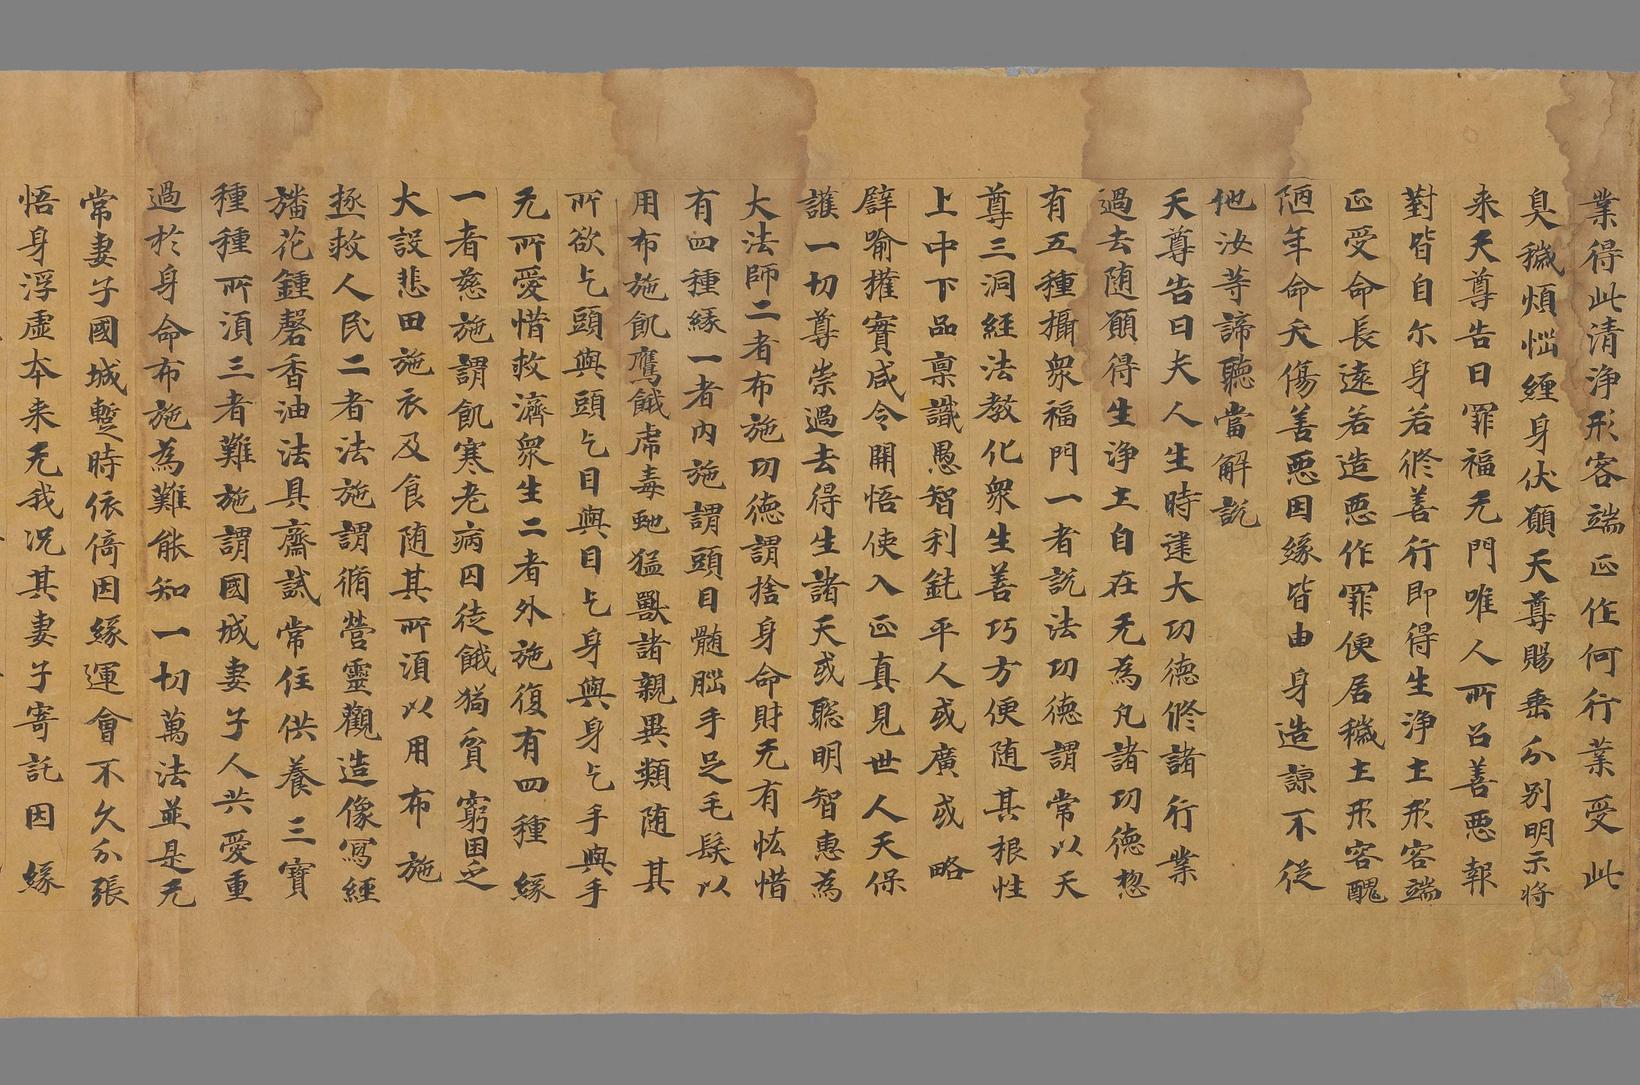 業得此清浄形容端正作何行業受此
臭穢煩惱纏身伏願天尊賜垂分别明示将
来天尊告曰罪福无門唯人所召善惡報
對皆自尔身若修善行即得生浄土形容端
正受命長遠若造惡作罪便居穢土形容醜
陋年命夭傷善惡因緣皆由身造諒不從
他汝等諦聽當解説
天尊告曰夫人生時建大功德修諸行業
過去随願得生浄土自在无為凡諸功德惣
有五種攝衆福門一者説法功德謂常以天
尊三洞經法教化衆生善巧方便随其根性
上中下品禀識愚智利鈍平人或廣或略
辟喻權實咸令開悟使入正真見世人天保
護一切尊崇過去得生諸天或聡明智惠為
大法師二者布施功德謂捨身命財无有恡惜
有四種緣一者内施謂頭目髓𦛁手足毛髮以
用布施飢鷹餓虎毒虵猛獸諸親異類随其
所欲乞頭與頭乞目與目乞身與身乞手與手
无所愛惜救濟衆生二者外施復有四種緣
一者慈施謂飢寒老病囚徒餓㺃貧窮困乏
大設悲田施衣及食随其所須以用布施
拯救人民二者法施謂脩營靈觀造像寫經
旛花鍾磬香油法具齋試常住供養三寶
種種所須三者難施謂國城妻子人共愛重
過於身命布施為難能知一切萬法並是无
常妻子國城蹔時依倚因緣運會不久分張
悟身浮虚本来无我况其妻子寄託因緣